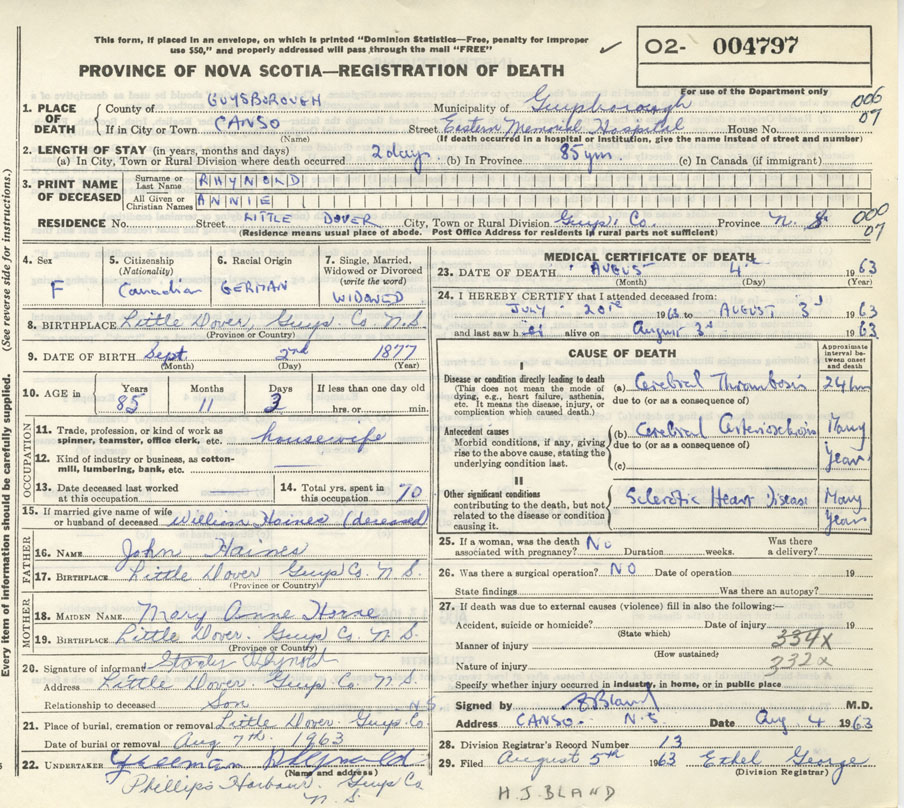 This form, if placed in an envelope, on which is printed "Dominion Statistics—Free, penalty for improper
use $50," and properly addressed will pass through the mail "FREE"
✓
O2- 004797
For use of the Department only
PROVINCE OF NOVA SCOTIA—REGISTRATION OF DEATH
006
07
1. PLACE OF DEATH
County of GUYSBOROUGH
Municipality of Guysborough
If in City or Town CANSO
Street Eastern Memorial Hospital House No.
(Name)
(If death occurred in a hospital or institution, give the name instead of street and number)
2. LENGTH OF STAY (in years, months and days)
(a) In City, Town or Rural Division where death occurred 2 days (b) In Province 85 yrs. (c) In Canada (if immigrant)
3. PRINT NAME OF DECEASED
Surname or Last Name RHYNOLD
All Given or Christian Names ANNIE
RESIDENCE No. Street LITTLE DOVER City, Town or Rural Division Guys. Co. Province N. S
000
07
(Residence means usual place of abode. Post Office Address for residents in rural parts not sufficient)
(See reverse side for instructions.)
Every item of information should be carefully supplied.
4. Sex
F
5. Citizenship
(Nationality)
Canadian
6. Racial Origin
GERMAN
7. Single, Married,
Widowed or Divorced
(write the word)
WIDOWED
8. BIRTHPLACE Little Dover, Guys. Co N.S
(Province or Country)
9. DATE OF BIRTH Sept 2nd 1877
(Month) (Day) (Year)
10. AGE in Years Months Days If less than one day old
85 11 3 hrs. or min.
OCCUPATION
11. Trade, profession, or kind of work as
spinner, teamster, office clerk, etc. housewife
12. Kind of industry or business, as cotton-
mill, lumbering, bank, etc.
13. Date deceased last worked
at this occupation
14. Total yrs. spent in
this occupation 70
15. If married give name of wife
or husband of deceased William Haines (deceased)
FATHER
16. NAME John Haines
17. BIRTHPLACE Little Dover Guys Co. N. S.
(Province or Country)
MOTHER
18. MAIDEN NAME Mary Anne Horne
19. BIRTHPLACE Little Dover. Guys Co N. S.
(Province or Country)
20. Signature of informant Rhynold
Address Little Dover. Guys Co N. S
Relationship to deceased Son
N.S
21. Place of burial, cremation or removal Little Dover. Guys. Co.
Date of burial or removal Aug 7th 1963
22. UNDERTAKER Rhynold
(Name and address)
Phillips Harbour. Guys Co
N. S
MEDICAL CERTIFICATE OF DEATH
23. DATE OF DEATH AUGUST 4th 1963
(Month) (Day) (Year)
24. I HEREBY CERTIFY that I attended deceased from:
JULY 20th 1963 to AUGUST 3rd 1963
and last saw h alive on August 3rd 1963
CAUSE OF DEATH
Approximate interval between onset and death
I
Disease or condition directly leading to death
(This does not mean the mode of
dying, e.g., heart failure, asthenia,
etc. It means the disease, injury, or
complication which caused death.)
(a) Cerebral Thrombosis 24 hrs
due to (or as a consequence of)
Antecedent causes
Morbid conditions, if any, giving
rise to the above cause, stating the
underlying condition last.
(b) Cerebral Arteriosclerosis Many Years
due to (or as a consequence of)
(c)
II
Other significant conditions
contributing to the death, but not
related to the disease or condition
causing it.
Sclerotic Heart Disease Many Years
25. If a woman, was the death
associated with pregnancy? No Duration weeks. Was there
a delivery?
26. Was there a surgical operation? NO Date of operation 19
State findings Was there an autopsy?
27. If death was due to external causes (violence) fill in also the following:—
Accident, suicide or homicide? Date of injury 19
(State which)
Manner of injury 334x
(How sustained)
Nature of injury 332x
Specify whether injury occurred in industry, in home, or in public place
Signed by Bland M.D.
Address CANSO. N.S Date Aug 4 1963
28. Division Registrar's Record Number 13
29. Filed August 5th 1963 Ethel George
(Division Registrar)
H.J. BLAND